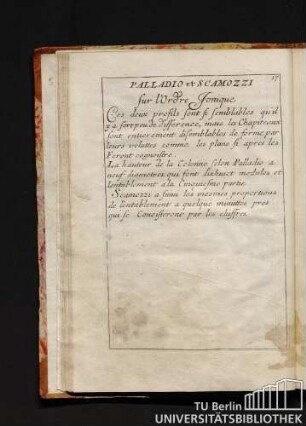 17
PALLADIO et SCAMOZZI
sur l'Ordre Jonique.
Ces deux profils sont si semblables qu'il
y a fort peu de difference, mais les Chapiteaux
sont entierement disemblables de forme par
leurs volutes comme les plans si apres les
Feront cognoistre.
La hauteur de la Colonne selon Palladio a
neuf diametres qui font dixhuict modules et
lentablement a la Cinquiesme partie.
Scamozzi a suiui les mesmes proportions
de lentablement a quelque minuttes pres
qui se Considerent par les chiffres.
TU Berlin
UNIVERSITÄTSBIBLIOTHEK